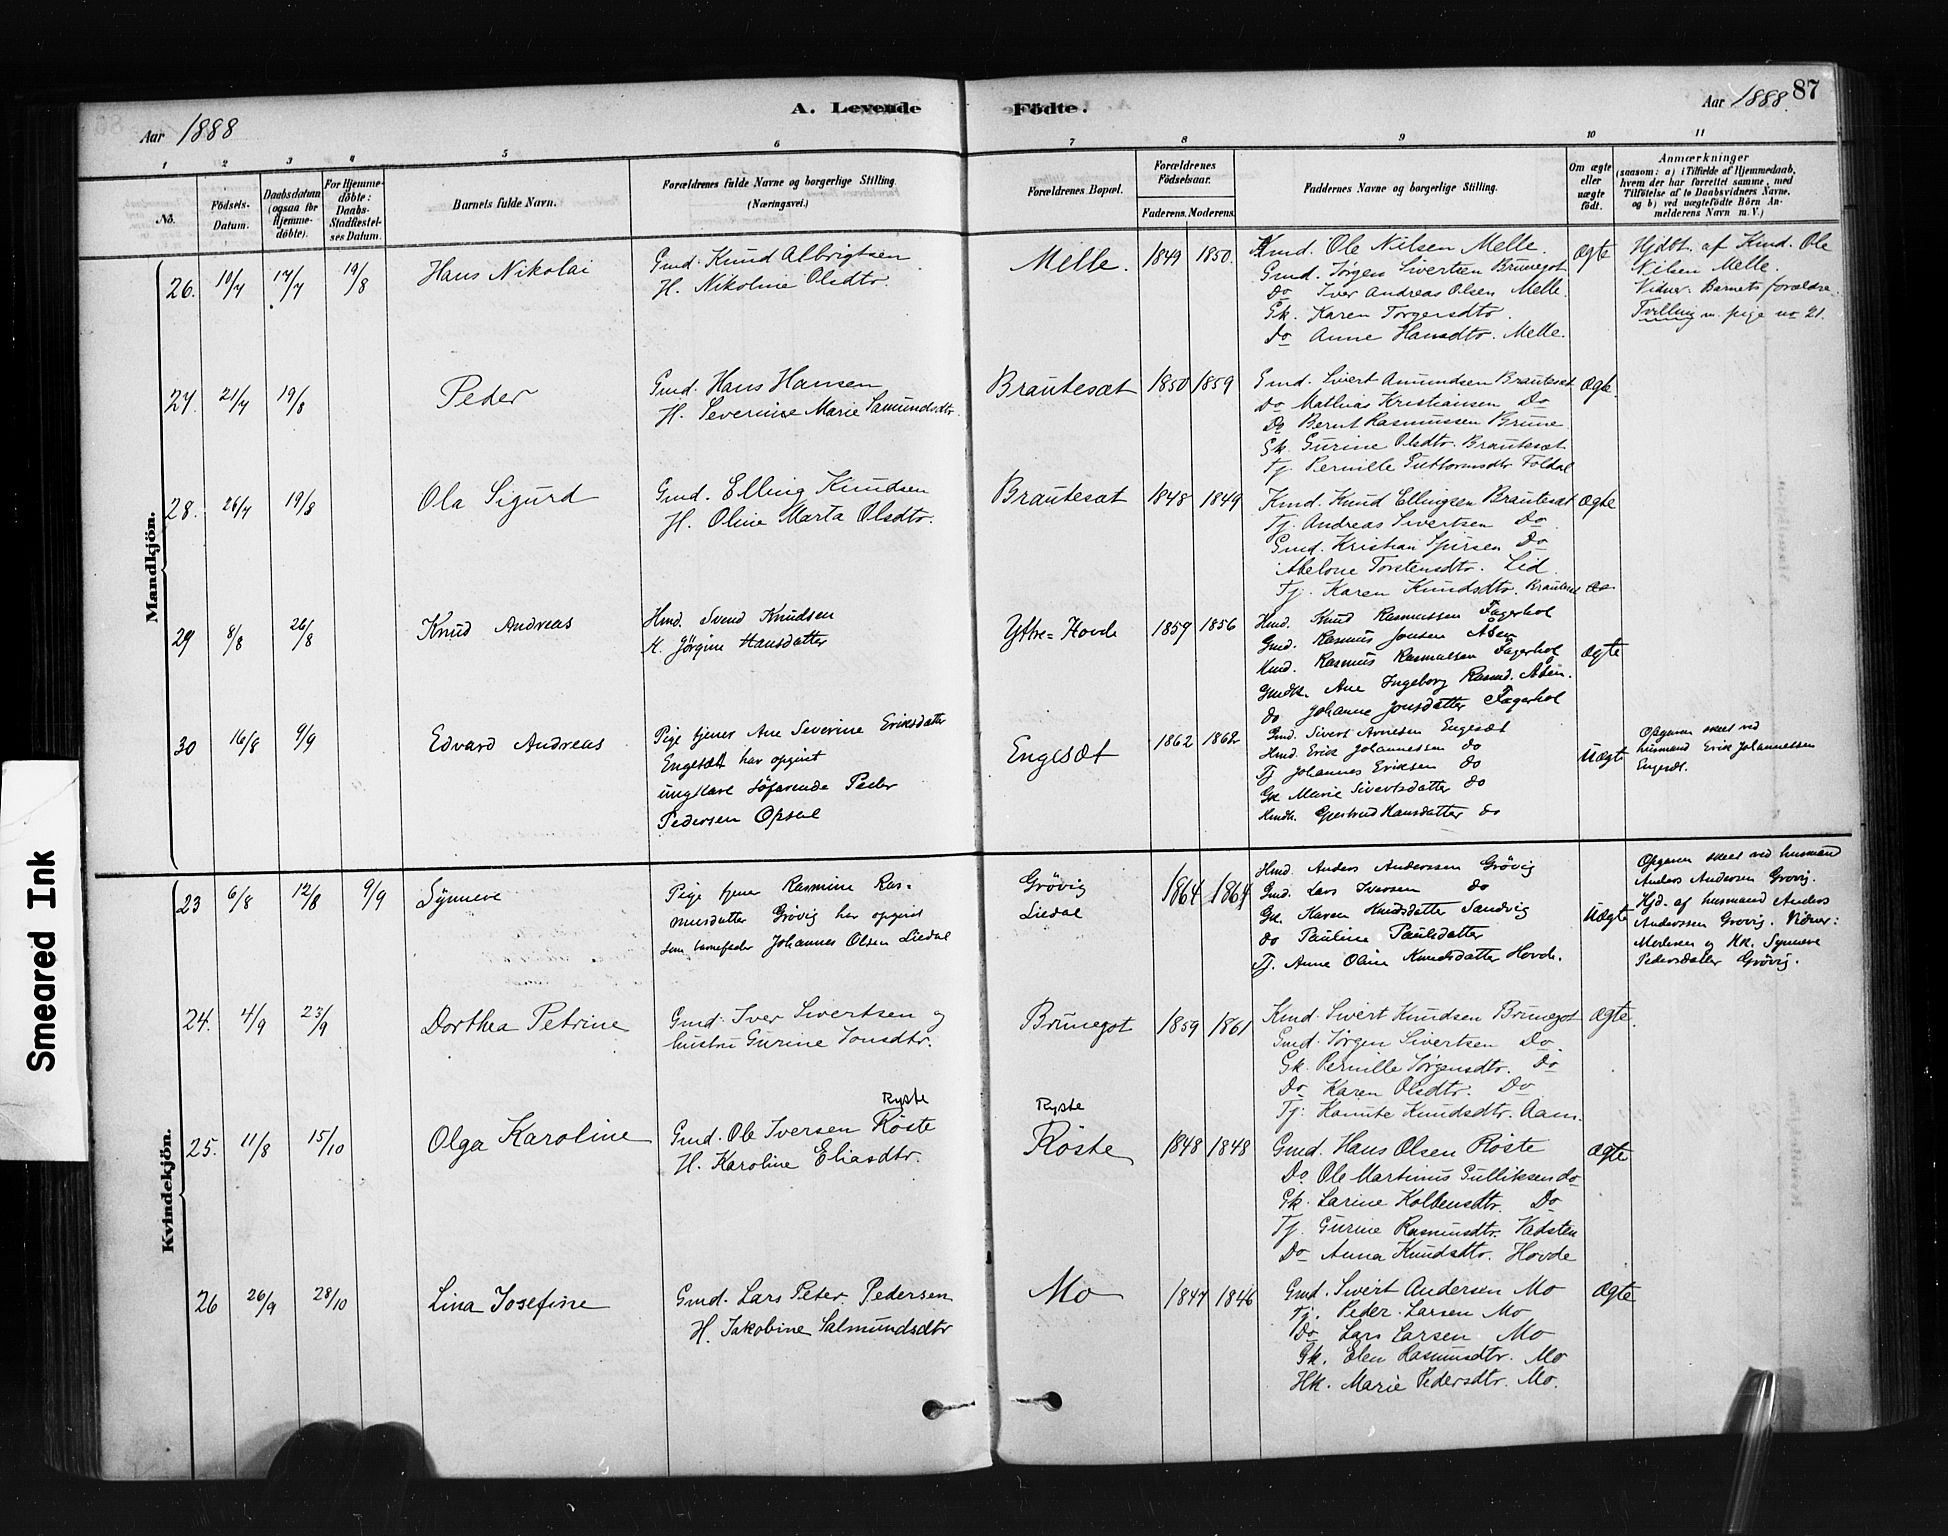 87
A. Levende Födte.
Aar 1888
Aar 1888.
1 2 3 4 5 6 7 8 9 10 11
No.
Födsels-
Datum.
Daabsdatum
(ogsaa for
Hjemme-
döbte).
For Hjemme-
döbte:
Daabs-
Stadfæstel-
ses Datum.
Barnets fulde Navn.
Forældrenes fulde Navne og borgerlige Stilling.
(Næringsvei.)
Forældrenes Bopæl.
Forældrenes
Födselsaar.
Faderens. Moderens.
Faddernes Navne og borgerlige Stilling.
Om ægte
eller
uægte
födt.
Anmærkninger
(saasom: a) i Tilfælde af Hjemmedaab,
hvem der har forrettet samme, med
Tilföielse af to Daabsvidners Navne,
og b) ved uægtefödte Börn An-
melderens Navn m. V.)
Mandkjön.
26. 10/7 17/7 19/8 Hans Nikolai
Gmd. Knud Albrigtsen
H. Nikoline Olsdtr.
Melle. 1849 1850.
Kmd. Ole Nilsen Melle.
Gmd. Jørgen Sivertsen Brunegot
Do Iver Andreas Olsen Melle.
Gk. Karen Torgersdtr.
Do Anne Hansdtr. Melle.
Ægte
Hjdbt. af Kmd. Ole
Nilsen Melle.
Vidner: Barnets forældre.
Tvilling m. pige no 21.
27. 21/7 19/8 Peder
Gmd. Hans Hansen
H. Severine Marie Samundsdtr.
Brautesæt 1850 1859
Gmd. Sivert Amundsen Brautesæt
Do Mathias Kristiansen Do
Do Bernt Rasmussen Brune
Gk. Gurine Olsdtr. Brautesæt
Tj. Pernille Guttormsdtr. Foldal
Ægte.
28. 26/7 19/8 Ola Sigurd
Gmd. Elling Knudsen
H. Oline Marta Olsdtr.
Brautesæt 1848 1849
Kmd. Knud Ellingsen Brautesæt
Tj. Andreas Sivertsen Do.
Gmd. Kristian Do
Abelone Torstensdtr. Lid.
Tj. Karen Knudsdtr. Brautesæt
Ægte
29 8/8 26/8 Knud Andreas
Hmd. Svend Knudsen
H. Jörgine Hansdatter
Ytre-Hovde 1857 1856
Hmd. Knud Rasmussen Fagerhol
Gmd. Rasmus Jonsen Åsen
Hmd. Rasmus Rasmussen Fagerhol
Gmdk. Ane Ingeborg Rasmd. Åsen.
do Johanne Jonsdatter Fagerhol
Ægte
30 16/8 9/9 Edvard Andreas
Pige tjener Ane Severine Eriksdatter
Engesæt har opgivit
ungkarl söfarende Peder
Pedersen Opsal
Engesæt 1862 1862
Gmd. Sivert Arnesen Engesæt
Hmd. Erik Johannessen do
Tj Johannes Eriksen do
Gk Marie Sivertsdatter do
Hmdk. Gjertrud Hansdatter do
Uægte
Opgaven skeet ved
husmand Erik Johannessen
Engesæt.
Kvindekjön.
23 6/8 12/8 9/9 Synneve
Pige tjener Rasmine Ras-
musdatter Grövig har opgivit
som barnefader Johannes Olsen Liedal
Grövig
Liedal
1864 1864
Hmd. Anders Anderssen Grövig
Gmd. Lars Iversen do
Gk. Karen Knudsdatter Sandvig
do Pauline Paulsdatter
Tj. Anne Oline Knudsdatter Hovde.
Uægte
Opgaven skeet ved husmand
Anders Andersen Grovig.
Hjd. af husmand Anders
Anderssen Grovig. Vidner:
Moderen og Hk. Synneve
Pedersdatter Grövig.
24. 4/9 23/9 Dorthea Petrine
Gmd. Iver Sivertsen og
hustru Gurine Jonsdtr.
Brunegot 1859 1861
Kmd. Sivert Knudsen Brunegot
Gmd. Jørgen Sivertsen Do.
Gk. Pernille Jørgensdtr. Do
Do Karen Olsdtr. Do
Tj. Hanute Knudsdtr. Aam.
Ægte.
25. 11/8 15/10 Olga Karoline
Ryste
Gmd. Ole Iversen Röste
H. Karoline Eliasdtr.
Ryste
Röste 1848 1848
Gmd. Hans Olsen Röste
Do Ole Martinus Gulliksen do
Gk. Larine Kolbensdtr. Do
Tj. Gurine Rasmusdtr. Vadsten
Do Anna Knudsdtr. Hovde
Ægte
26 26/9 28/10 Lina Josefine
Gmd. Lars Peter Pedersen
H. Jakobine Salmundsdtr
Mo 1847 1846
Gmd. Sivert Andersen Mo
Tj. Peder Larsen Mo
Do Lars Larsen Mo
Gk. Elen Rasmusdtr. Mo
Hk. Marie Pedersdtr. Mo.
Ægte
Smeared Ink